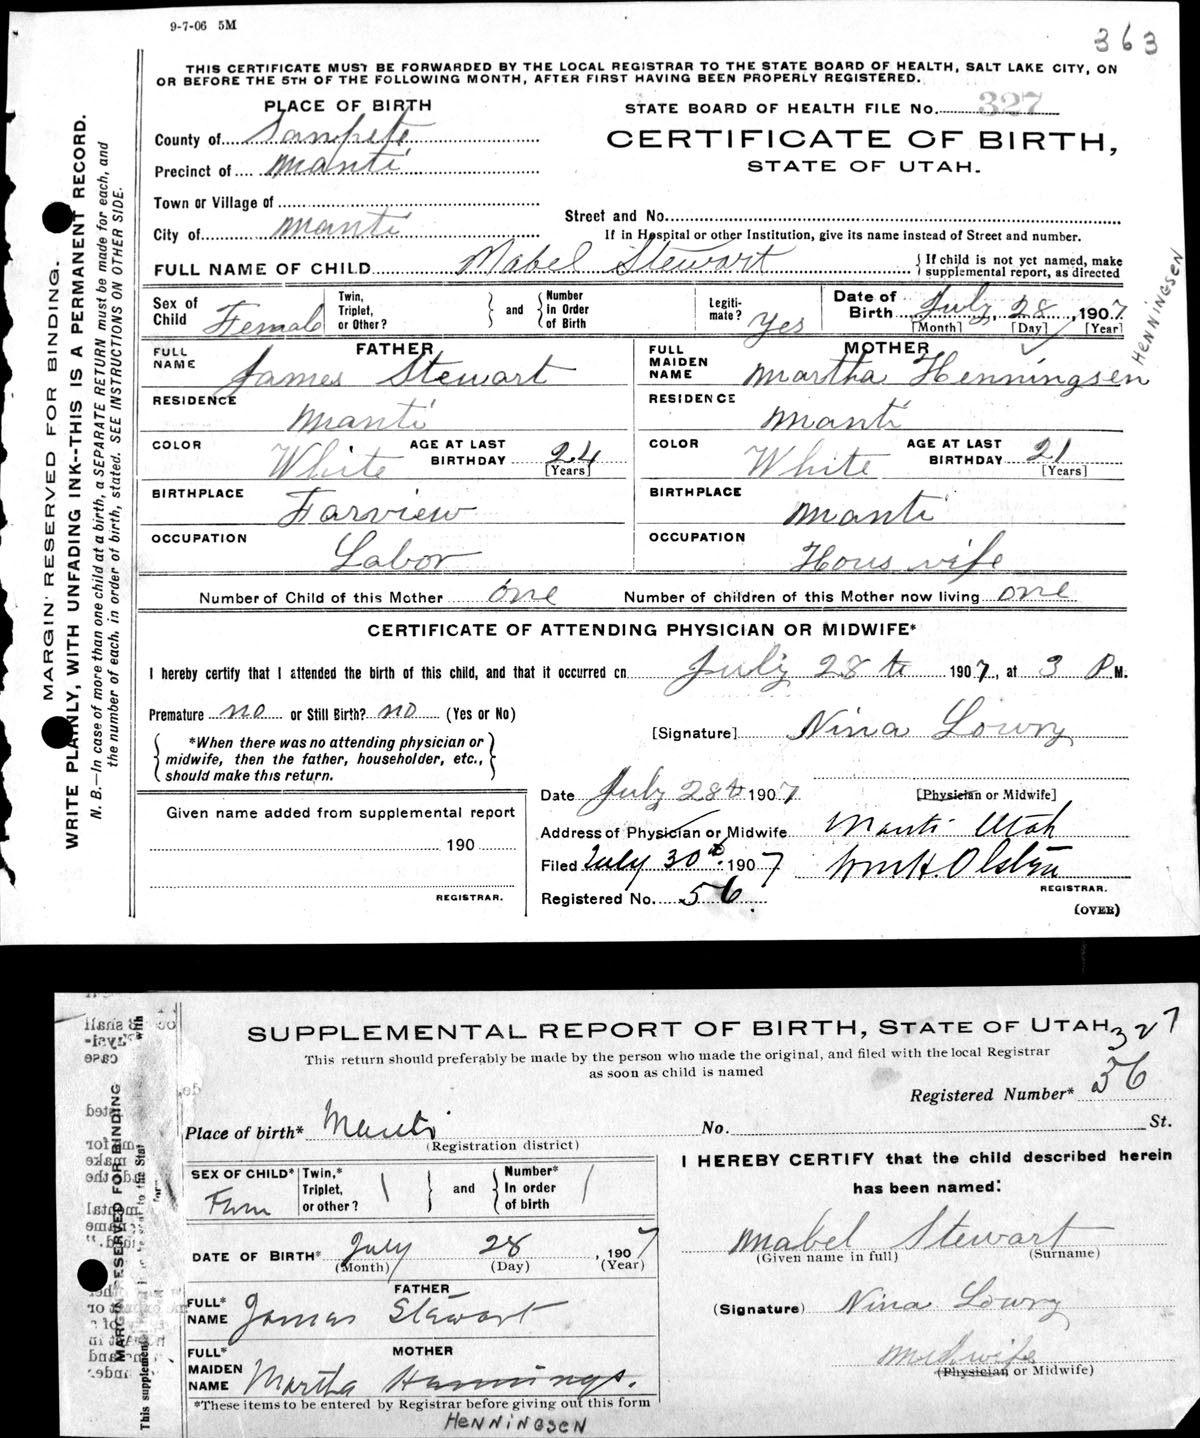 9-7-06 5M
363
THIS CERTIFICATE MUST BE FORWARDED BY THE LOCAL REGISTRAR TO THE STATE BOARD OF HEALTH, SALT LAKE CITY, ON
OR BEFORE THE 5TH OF THE FOLLOWING MONTH, AFTER FIRST HAVING BEEN PROPERLY REGISTERED.
PLACE OF BIRTH
STATE BOARD OF HEALTH FILE No. 327
County of Sanpete
CERTIFICATE OF BIRTH,
Precinct of Manti
STATE OF UTAH.
Town or Village of
Street and No.
City of Manti
If in Hospital or other Institution, give its name instead of Street and number.
FULL NAME OF CHILD Mabel Stewart
{ If child is not yet named, make
supplemental report, as directed
Sex of Child Female
Twin, Triplet, or Other? } and { Number In Order of Birth
Legiti-mate? Yes
Date of Birth July, 28, 1907
[Month] [Day] [Year]
HENNINGSEN
FATHER
FULL NAME James Stewart
MOTHER
FULL MAIDEN NAME Martha Henningsen
RESIDENCE Manti
RESIDENCE Manti
COLOR White AGE AT LAST BIRTHDAY 24 [Years]
COLOR White AGE AT LAST BIRTHDAY 21 [Years]
BIRTHPLACE Farview
BIRTHPLACE Manti
OCCUPATION Labor
OCCUPATION Hous wife
Number of Child of this Mother one Number of children of this Mother now living one
CERTIFICATE OF ATTENDING PHYSICIAN OR MIDWIFE*
I hereby certify that I attended the birth of this child, and that it occurred on July 28th 1907, at 3 P M.
Premature no or Still Birth? no (Yes or No)
[Signature] Nina Lowry
{ *When there was no attending physician or
midwife, then the father, householder, etc.,
should make this return. }
Date July 28th 1907
[Physician or Midwife]
Given name added from supplemental report
190
REGISTRAR.
Address of Physician or Midwife Manti Utah
Filed July 30th 1907 Wm H. Olsten
REGISTRAR.
Registered No. 56.
(OVER)
MARGIN RESERVED FOR BINDING.
WRITE PLAINLY, WITH UNFADING INK--THIS IS A PERMANENT RECORD.
N. B.—In case of more than one child at a birth, a SEPARATE RETURN must be made for each, and
the number of each, in order of birth, stated. SEE INSTRUCTIONS ON OTHER SIDE.
SUPPLEMENTAL REPORT OF BIRTH, STATE OF UTAH 327
This return should preferably be made by the person who made the original, and filed with the local Registrar
as soon as child is named
Registered Number* 56
Place of birth* Manti No. St.
(Registration district)
SEX OF CHILD* Fem
Twin,* Triplet, or other? } and { Number* In order of birth
DATE OF BIRTH* July 28, 1907
(Month) (Day) (Year)
FATHER
FULL* NAME James Stewart
MOTHER
FULL* MAIDEN NAME Martha Hannings.
*These items to be entered by Registrar before giving out this form
HENNINGSEN
I HEREBY CERTIFY that the child described herein
has been named:
Mabel Stewart
(Given name in full) (Surname)
(Signature) Nina Lowry
Midwife
(Physician or Midwife)
MARGIN RESERVED FOR BINDING
This supplemental
to the Stat